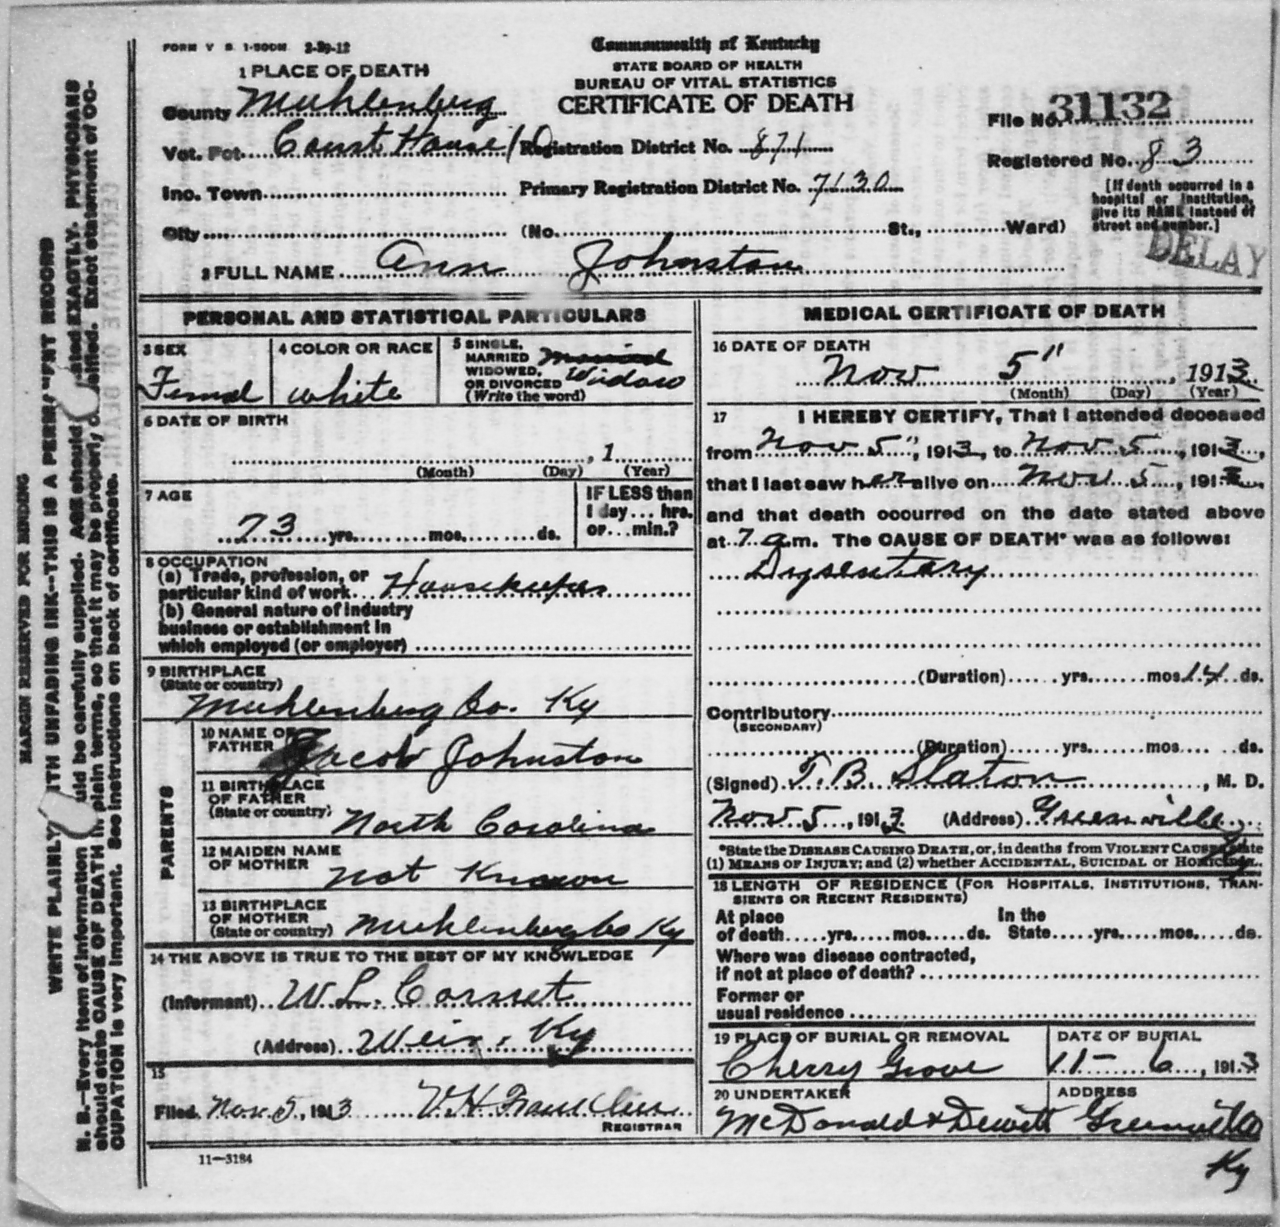 FORM V. S. 1-500M 2-29-12
Commonwealth of Kentucky
STATE BOARD OF HEALTH
BUREAU OF VITAL STATISTICS
CERTIFICATE OF DEATH
1 PLACE OF DEATH
County Muhlenberg
Vot. Pct. Court House
Inc. Town
City
Registration District No. 871
Primary Registration District No. 7130
(No. St., Ward)
File No. 31132
Registered No. 83
[If death occurred in a
hospital or institution,
give its NAME instead of
street and number.]
DELAY
2 FULL NAME Ann Johnston
PERSONAL AND STATISTICAL PARTICULARS
3 SEX
Femal
4 COLOR OR RACE
white
5 SINGLE,
MARRIED
WIDOWED,
OR DIVORCED
(Write the word)
Married
Widow
6 DATE OF BIRTH
, 1
(Month) (Day) (Year)
7 AGE
73 yrs. mos. ds.
IF LESS than
1 day... hrs.
or... min.?
8 OCCUPATION
(a) Trade, profession, or
particular kind of work Housekeeper
(b) General nature of industry
business or establishment in
which employed (or employer)
9 BIRTHPLACE
(State or country)
Muhlenberg Co. Ky
PARENTS
10 NAME OF
FATHER Jacob Johnston
11 BIRTHPLACE
OF FATHER
(State or country)
North Carolina
12 MAIDEN NAME
OF MOTHER
not Known
13 BIRTHPLACE
OF MOTHER
(State or country) Muhlenberg Co Ky
14 THE ABOVE IS TRUE TO THE BEST OF MY KNOWLEDGE
(Informant) W. L.
(Address) Weir, Ky
15
Filed Nov. 5, 1913 V H Franklin
REGISTRAR
11—3184
MEDICAL CERTIFICATE OF DEATH
16 DATE OF DEATH
Nov 5", 1913
(Month) (Day) (Year)
17 I HEREBY CERTIFY, That I attended deceased
from Nov 5", 1913, to Nov 5, 1913,
that I last saw her alive on Nov 5, 1913,
and that death occurred on the date stated above
at 7 a.m. The CAUSE OF DEATH* was as follows:
Dysentary
(Duration) yrs. mos. 14 ds.
Contributory
(SECONDARY)
(Duration) yrs. mos. ds.
(Signed) T. B. Slaton, M. D.
Nov 5, 1913 (Address) Greenville Ky
*State the DISEASE CAUSING DEATH, or, in deaths from VIOLENT CAUSES, state
(1) MEANS OF INJURY; and (2) whether ACCIDENTAL, SUICIDAL or HOMICIDAL.
18 LENGTH OF RESIDENCE (FOR HOSPITALS, INSTITUTIONS, TRAN-
SIENTS OR RECENT RESIDENTS)
At place
of death yrs. mos. ds.
In the
State yrs. mos. ds.
Where was disease contracted,
if not at place of death?
Former or
usual residence
19 PLACE OF BURIAL OR REMOVAL
Cherry Grove
DATE OF BURIAL
11— 6, 1913
20 UNDERTAKER
McDonald & Dewitt
ADDRESS
Greenville
Ky
MARGIN RESERVED FOR BINDING
WRITE PLAINLY WITH UNFADING INK—THIS IS A PERMANENT RECORD
N. B.—Every item of information should be carefully supplied. AGE should be stated EXACTLY. PHYSICIANS
should state CAUSE OF DEATH in plain terms, so that it may be properly classified. Exact statement of OC-
CUPATION is very important. See instructions on back of certificate.